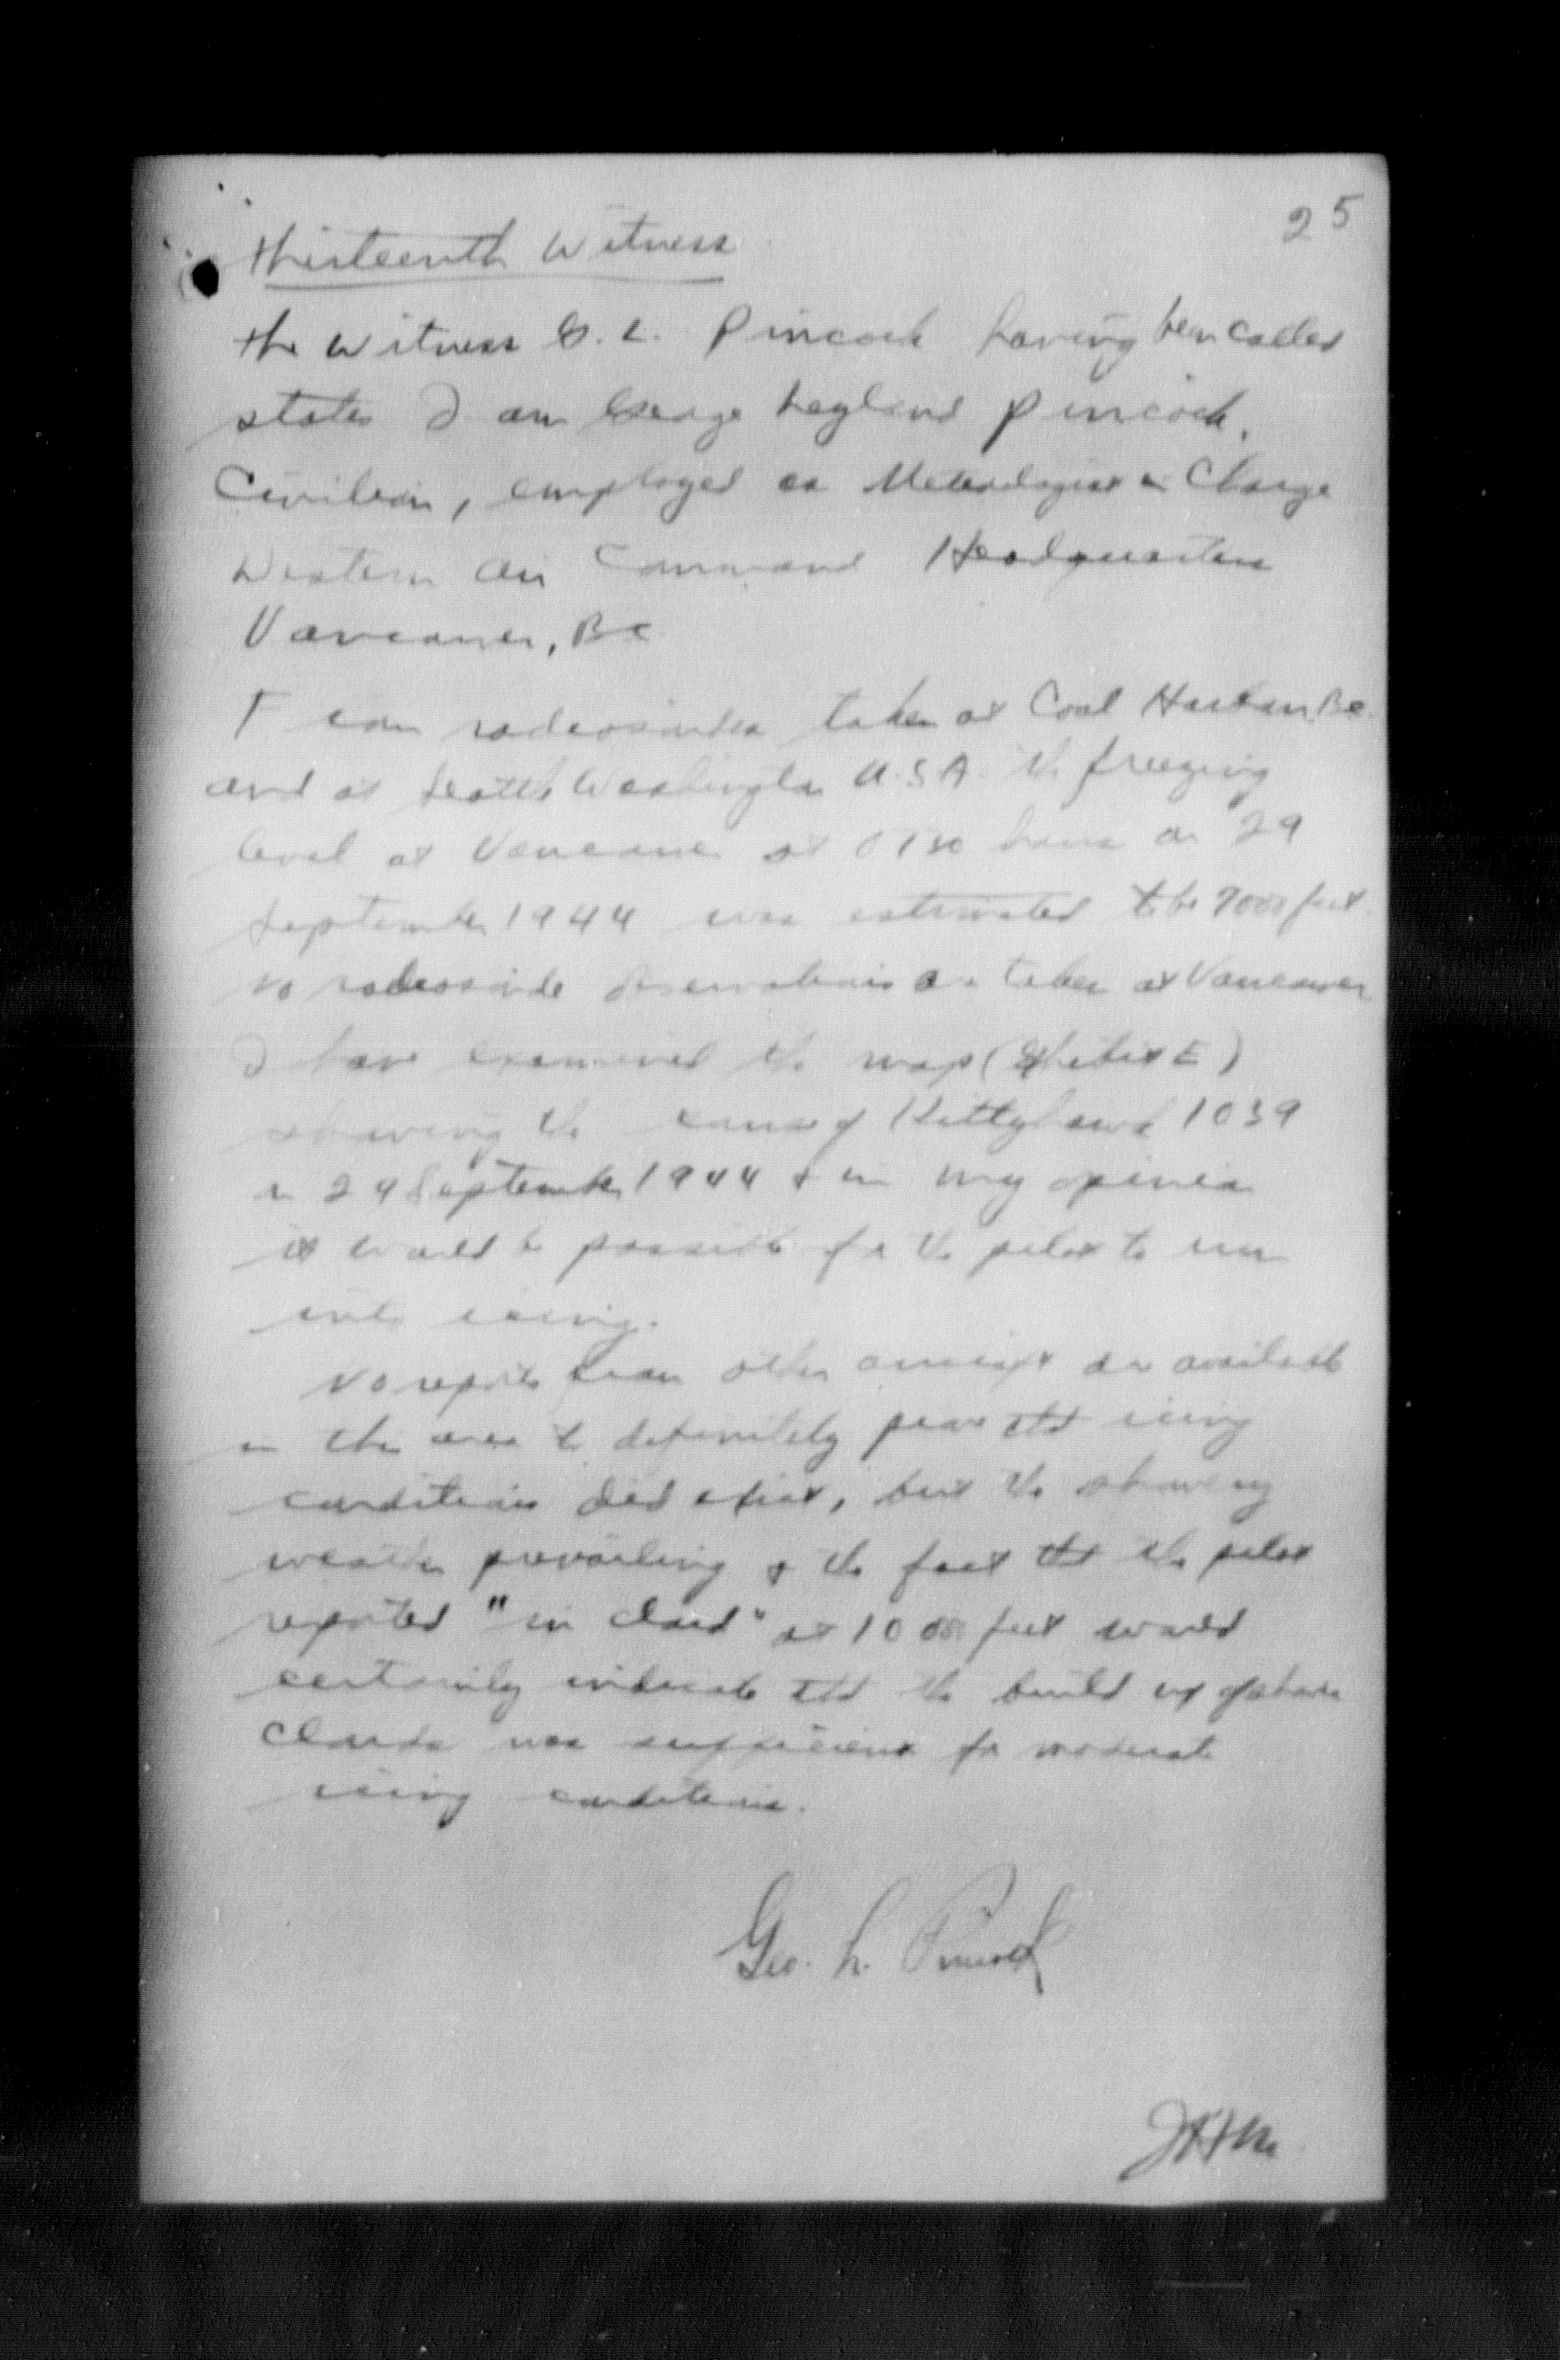 25
Thirteenth Witness
The Witness G. L. Pincock having been called
states I am George Leyland Pincock,
Civilian, employed as Meteorologist in Charge
Western Air Command Headquarters
Vancouver, BC
From radiosondes taken at Coal Harbour, BC.
and at Seattle Washington U.S.A. the freezing
level at Vancouver at 0130 hours on 29
September 1944 was estimated to be 7000 feet.
No radiosonde observations are taken at Vancouver.
I have examined the map (Exhibit E)
showing the course of Kittyhawk 1039
on 29 September 1944 & in my opinion
it would be possible for the pilot to run
into icing.
No reports from other aircraft are available
in the area to definitely prove that icing
conditions did exist, but the showery
weather prevailing & the fact that the pilot
reported "in cloud" at 10000 feet would
certainly indicate that the build up of shower
clouds was sufficient for moderate
icing conditions.
Geo. L. Pincock